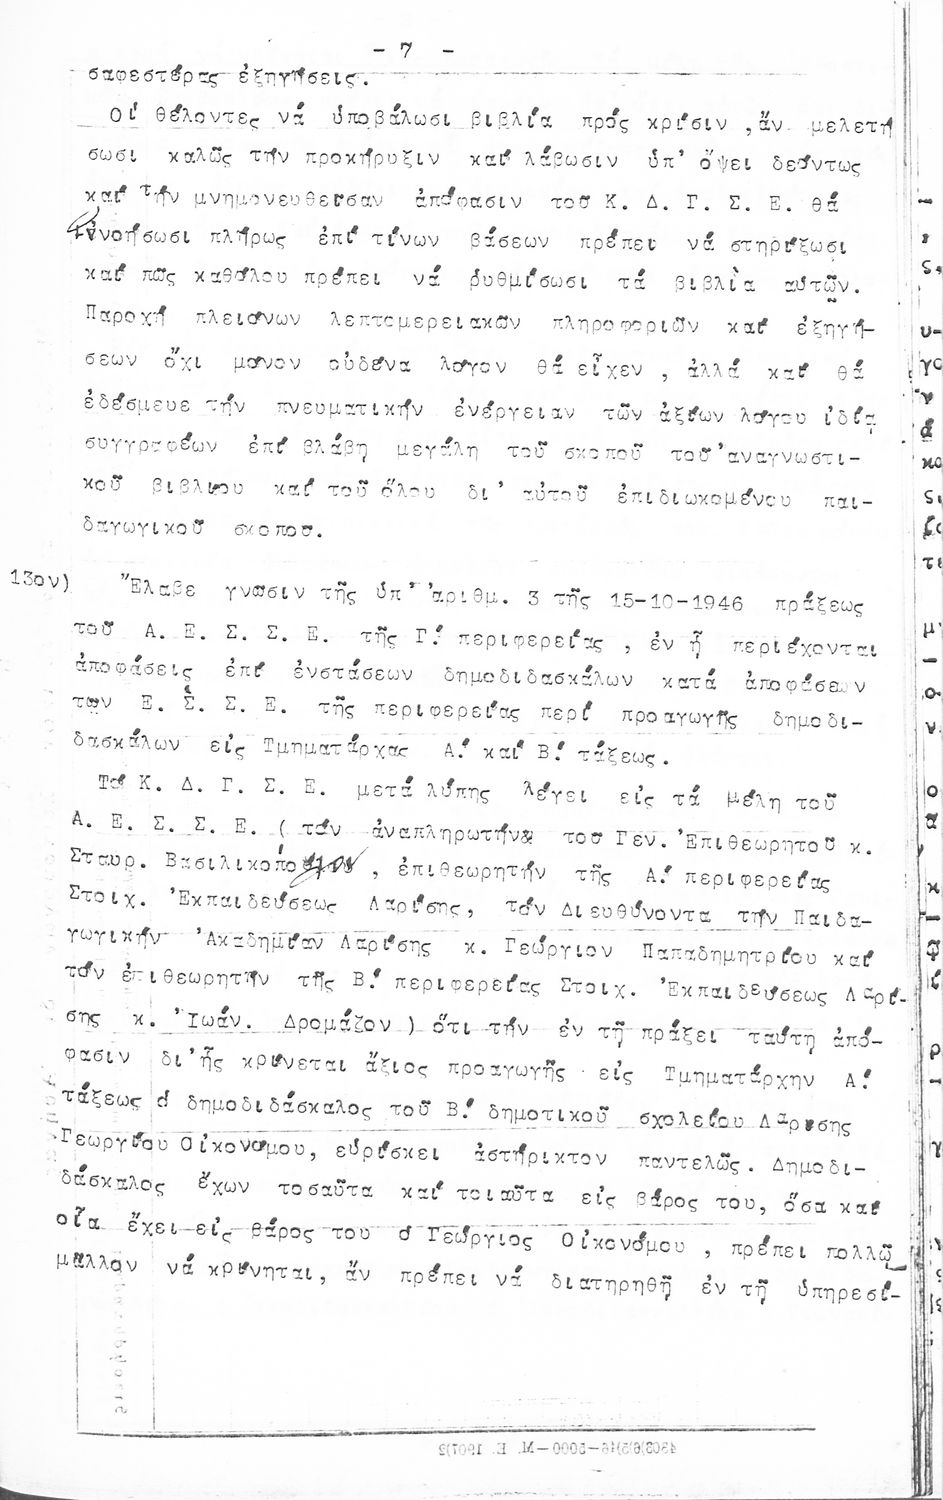 - 7 -
σαφεστέρας ἐξηγήσεις.
Οἱ θέλοντες νά ὑποβάλωσι βιβλία πρός κρίσιν , ἄν μελετή
σωσι καλῶς τήν προκήρυξιν καί λάβωσιν ὑπ' ὄψει δεόντως
καί τήν μνημονευθεῖσαν ἀπόφασιν τοῦ Κ. Δ. Γ. Σ. Ε. θά
ἐννοήσωσι πλήρως ἐπί τίνων βάσεων πρέπει νά στηρίξωσι
καί πῶς καθόλου πρέπει νά ρυθμίσωσι τά βιβλία αὐτῶν.
Παροχή πλειόνων λεπτομερειακῶν πληροφοριῶν καί ἐξηγή-
σεων ὄχι μόνον οὐδένα λόγον θά εἶχεν , ἀλλά καί θά
ἐδέσμευε τήν πνευματικήν ἐνέργειαν τῶν ἀξίων λόγου ἰδίᾳ
συγγραφέων ἐπί βλάβῃ μεγάλῃ τοῦ σκοποῦ τοῦ ἀναγνωστι-
κοῦ βιβλίου καί τοῦ ὅλου δι' αὐτοῦ ἐπιδιωκομένου παι-
δαγωγικοῦ σκοποῦ.
13ον) Ἔλαβε γνῶσιν τῆς ὑπ' ἀριθμ. 3 τῆς 15-10-1946 πράξεως
τοῦ Α. Ε. Σ. Σ. Ε. τῆς Γ΄. περιφερείας , ἐν ᾗ περιέχονται
ἀποφάσεις ἐπί ἐνστάσεων δημοδιδασκάλων κατά ἀποφάσεων
τῶν Ε. Σ. Σ. Ε. τῆς περιφερείας περί προαγωγῆς δημοδι-
δασκάλων εἰς Τμηματάρχας Α΄. καί Β΄. τάξεως.
Τό Κ. Δ. Γ. Σ. Ε. μετά λύπης λέγει εἰς τά μέλη τοῦ
Α. Ε. Σ. Σ. Ε. ( τόν ἀναπληρωτήν τοῦ Γεν. Ἐπιθεωρητοῦ κ.
Σταυρ. Βασιλικόπουλον , ἐπιθεωρητήν τῆς Α΄. περιφερείας
Στοιχ. Ἐκπαιδεύσεως Λαρίσης, τόν Διευθύνοντα τήν Παιδα-
γωγικήν Ἀκαδημίαν Λαρίσης κ. Γεώργιον Παπαδημητρίου καί
τόν ἐπιθεωρητήν τῆς Β΄. περιφερείας Στοιχ. Ἐκπαιδεύσεως Λαρί-
σης κ. Ἰωάν. Δρομάζον ) ὅτι τήν ἐν τῇ πράξει ταύτῃ ἀπό-
φασιν δι' ἧς κρίνεται ἄξιος προαγωγῆς εἰς Τμηματάρχην Α΄.
τάξεως ὁ δημοδιδάσκαλος τοῦ Β΄. δημοτικοῦ σχολείου Λαρίσης
Γεωργίου Οἰκονόμου, εὑρίσκει ἀστήρικτον παντελῶς. Δημοδι-
δάσκαλος ἔχων τοσαῦτα καί τοιαῦτα εἰς βάρος του, ὅσα καί
οἷα ἔχει εἰς βάρος του ὁ Γεώργιος Οἰκονόμου , πρέπει πολλῷ
μᾶλλον νά κρίνηται, ἄν πρέπει νά διατηρηθῇ ἐν τῇ ὑπηρεσί-